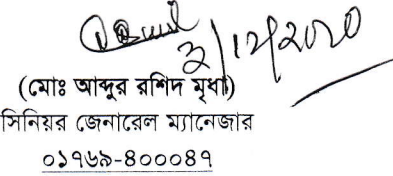 ৩/১২/২০২০
(মোঃ আব্দুর রশিদ মৃধা)
সিনিয়র জেনারেল ম্যানেজার
০১৭৬৯-৪০০০৪৭